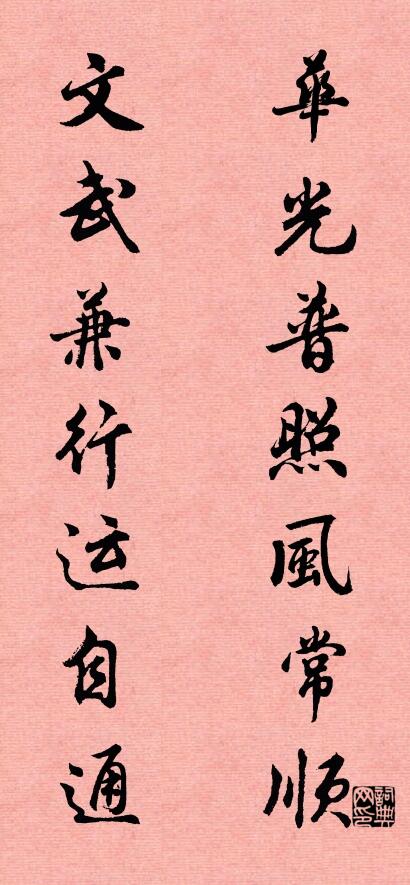 華光普照風常順
文武兼行运自通
詞典网印